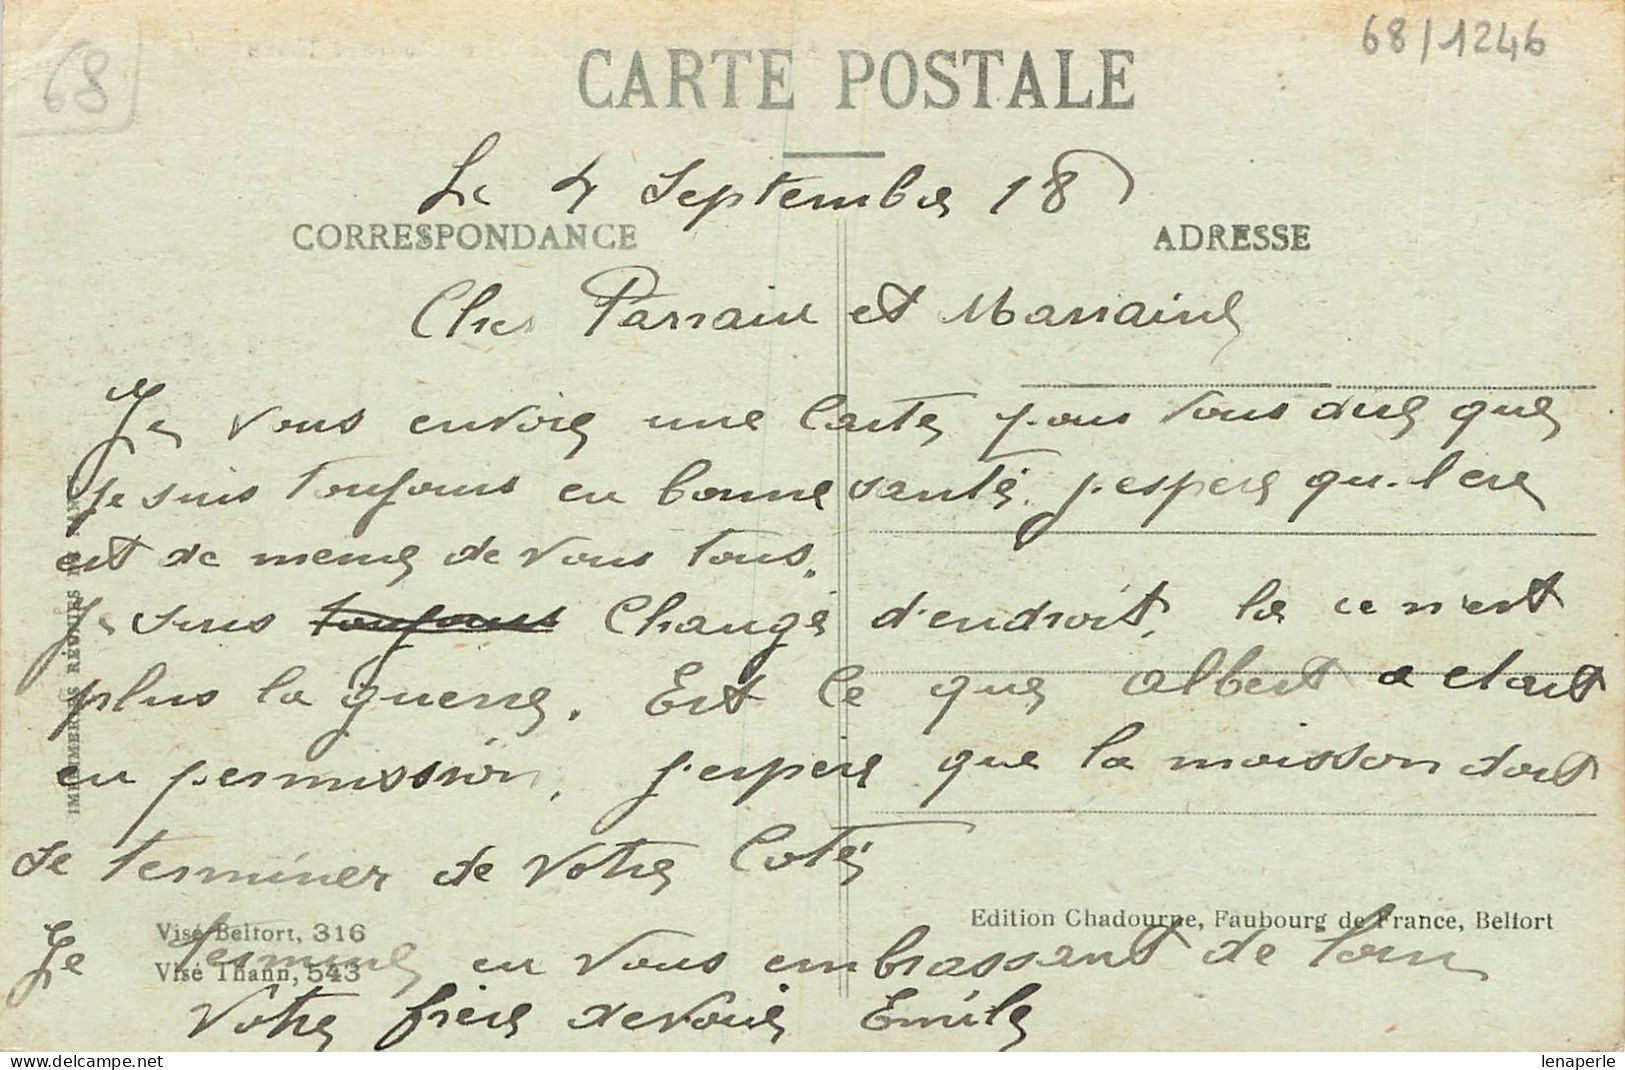 68
68/1246
CARTE POSTALE
Le 4 Septembre 18
CORRESPONDANCE
ADRESSE
Cher Parrain et Marraine
Je vous envoie une Carte pour vous dire que
je suis toujours en bonne santé. j'espere qu'l ere
est de meme de vous tous.
Je suis toujours Changé d'endroit, la ce n'est
plus la guerre. Est Ce que Albert a etait
en permission, j'espere que la moisson doit
se terminer de votre Coté
Je termine en vous embrassant de loin
Votre frere devoué Emile
IMPRIMERIES RÉUNIES DE NANCY
Visé Belfort, 316
Visé Thann, 543
Edition Chadourne, Faubourg de France, Belfort
lenaperle